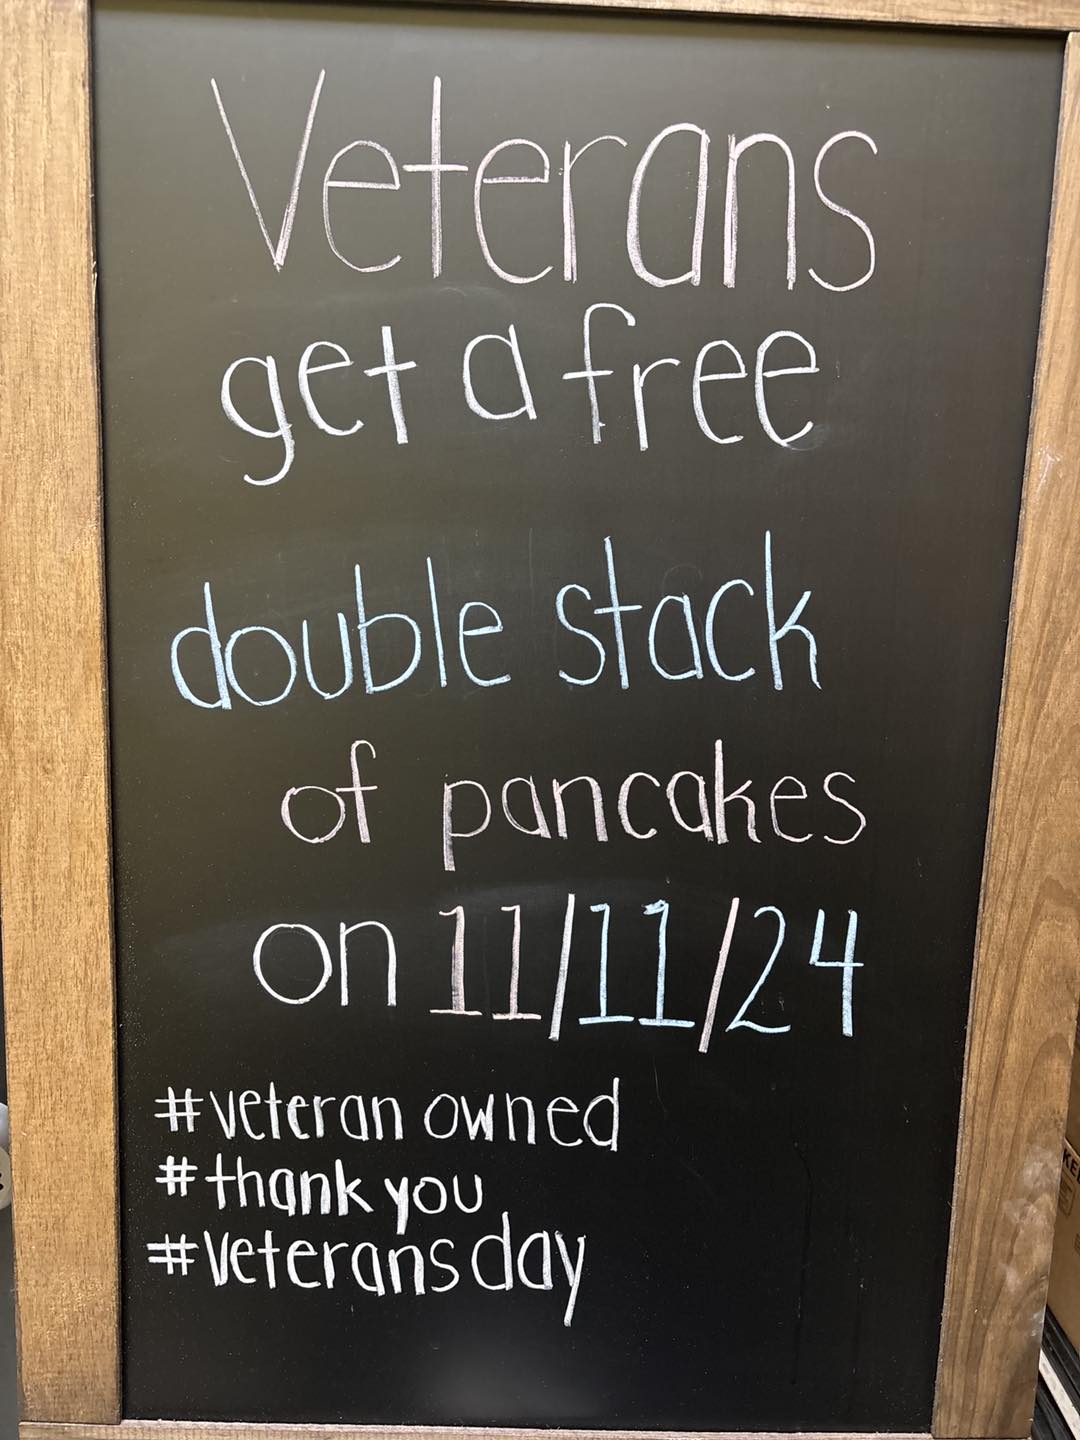 Veterans
get a free
double stack
of pancakes
on 11/11/24
#veteran owned
#thank you
#veterans day